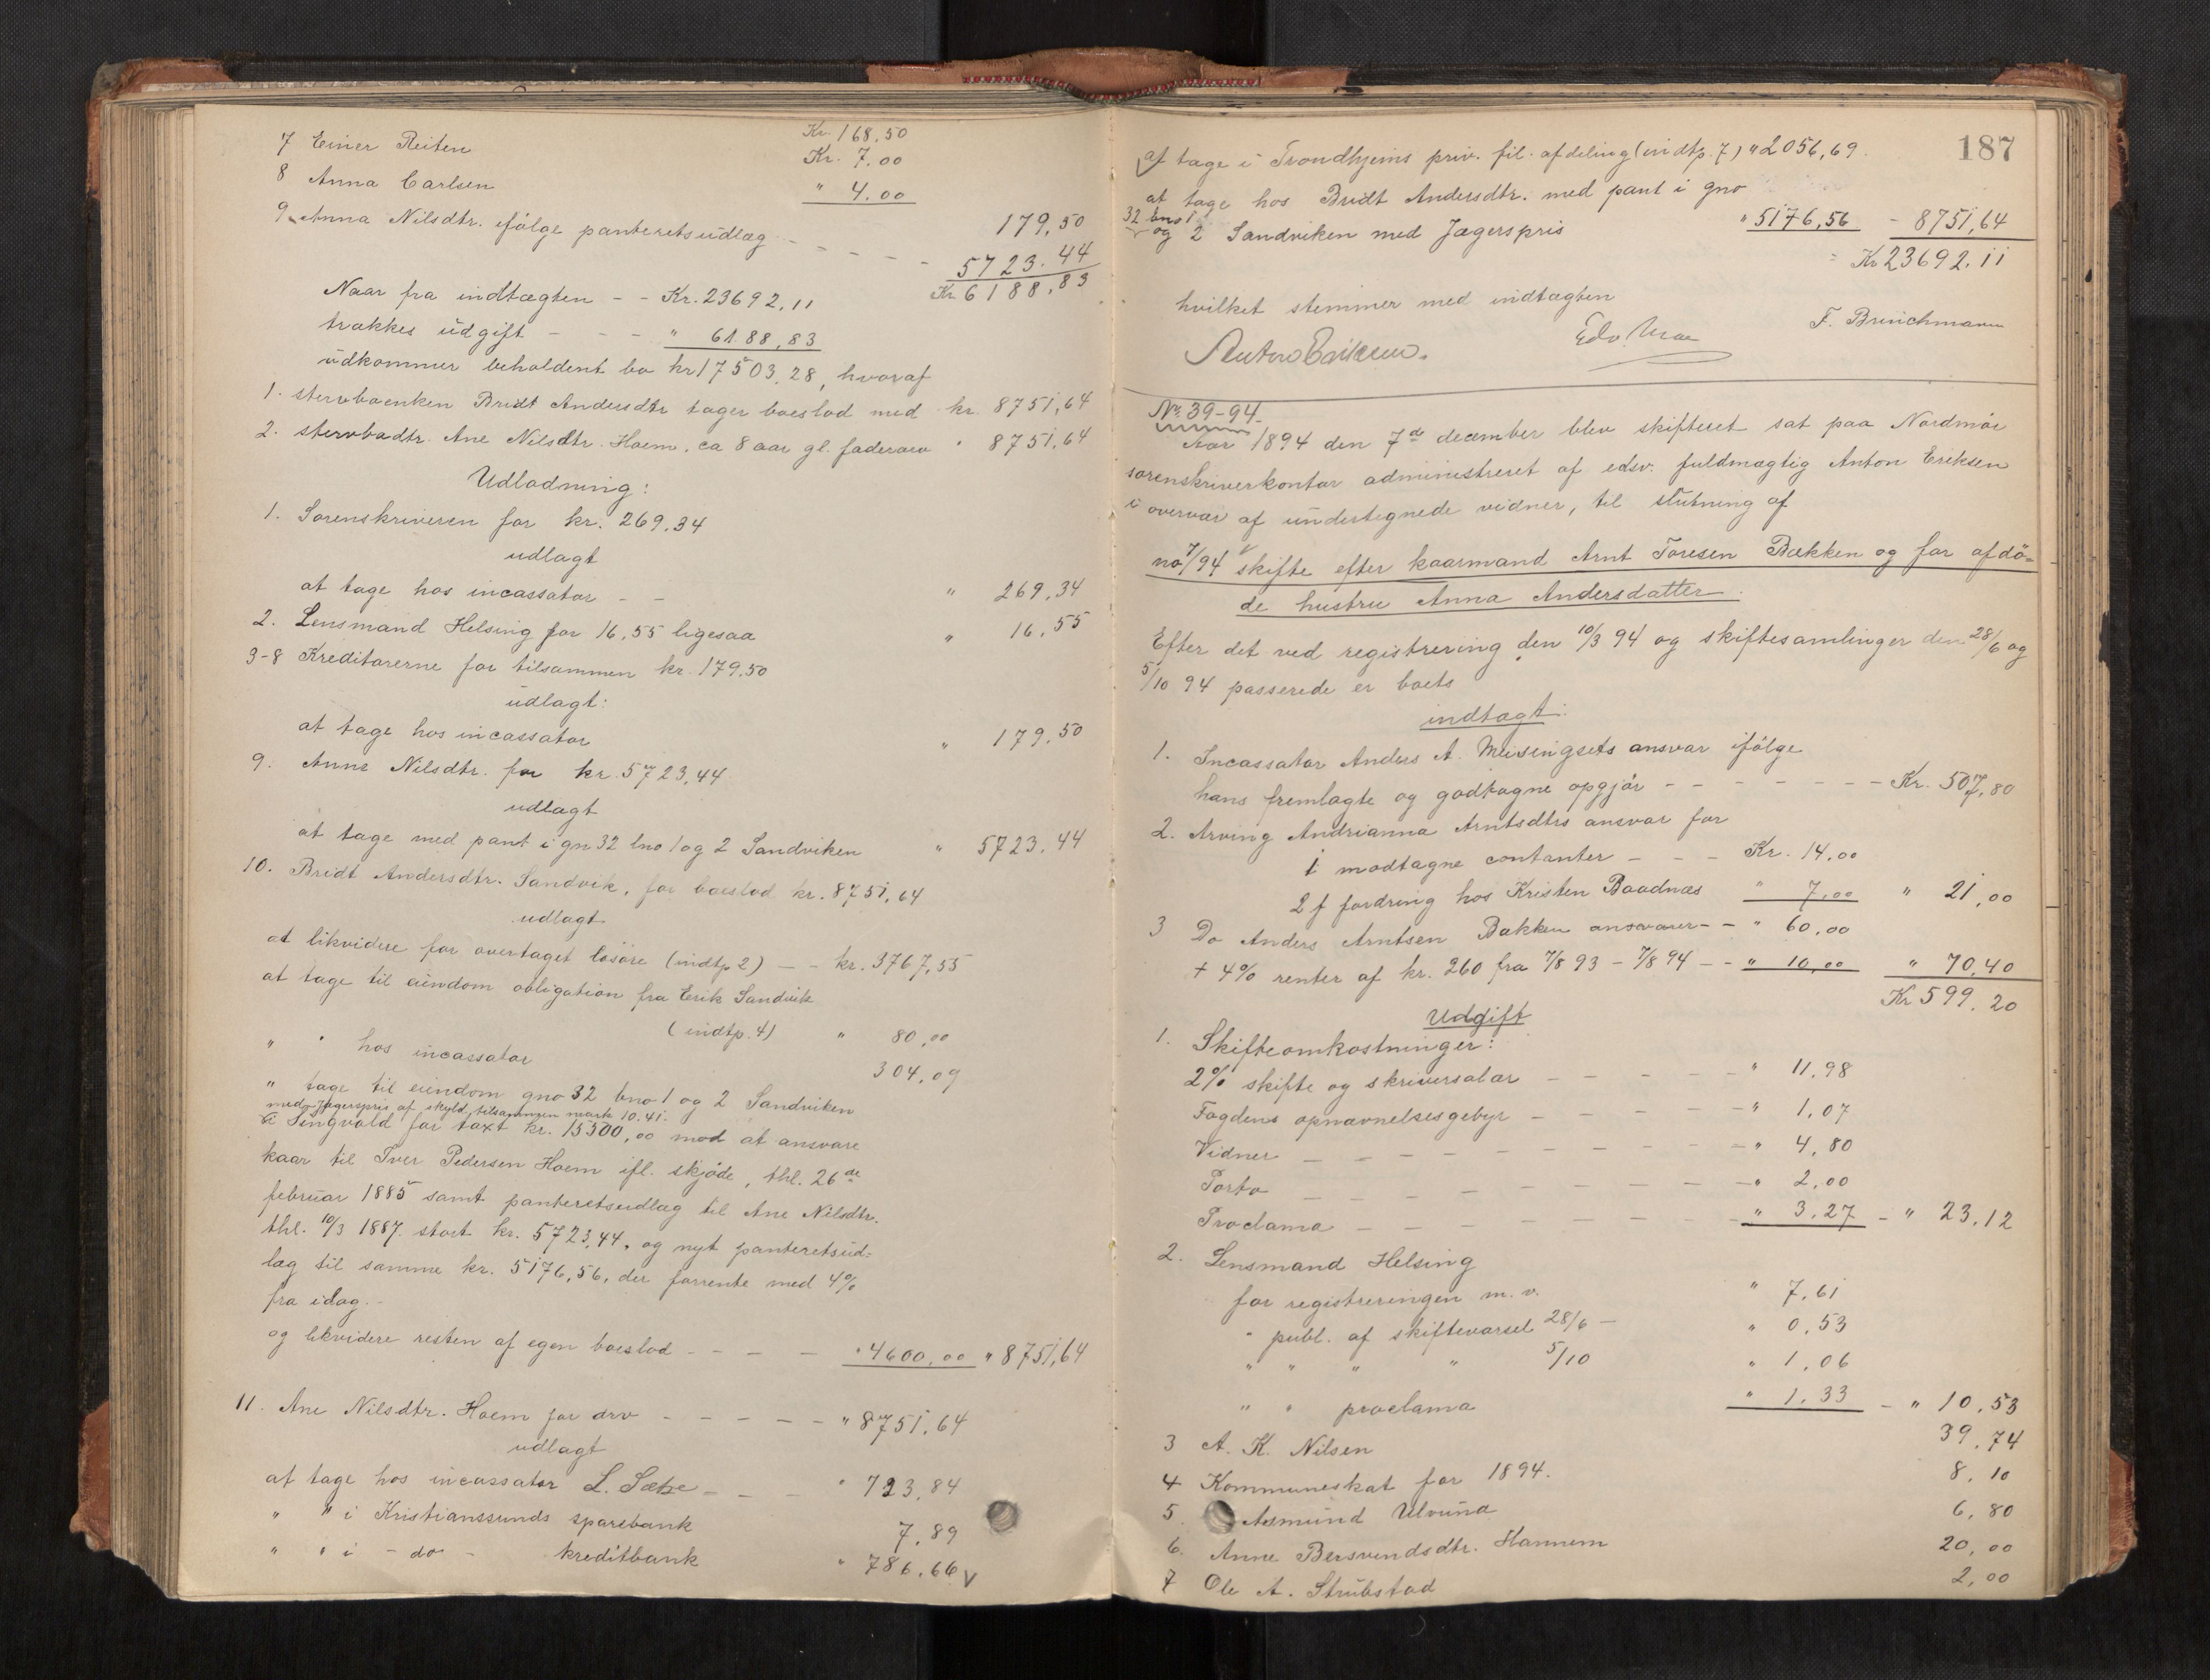 Kr. 168,50
7 Einer Reiten Kr. 7,00
8 Anna Carlsen " 4.00
179,50
9 Anna Nilsdtr. ifølge panteretsudlæg - - - - - - 5723.44
Kr. 6188,83
Naar fra indtægten - - Kr. 23692,11
trækkes udgift - - - " 6188,83
udkommer beholdent bo kr 17503,28, hvoraf
1. stervboenken Bridt Andersdtr tager boeslod med kr. 8751,64
2. stervbodtr. Ane Nilsdtr. Hoem, ca 8 aar gl. faderarv " 8751,64
Udlodning:
1. Sorenskriveren for kr. 269.34
udlagt
at tage hos incassator - - " 269,34
2. Lensmand Helsing for 16,55 ligesaa " 16,55
3-8 Kreditorerne for tilsammen kr. 179.50
udlagt:
at tage hos incassator " 179.50
9. Anne Nilsdtr. for kr. 5723,44
udlagt
at tage med pant i gn 32 bno 1 og 2 Sandviken " 5723.44
10. Bridt Andersdtr. Sandvik, for boeslod kr. 8751,64
udlagt
at likvidere for overtaget løsøre (indtp 2) - - kr. 3767,55
at tage til eiendom obligation fra Erik Sandvik
(indtp. 4) " 80,00
" " hos incassator 304,09
" tage til eiendom gno 32 bno 1 og 2 Sandviken
med Jægerspris af skyld tilsammen mark 10.41.
i Tingvold for taxt kr. 15500,00 mod at ansvare
kaar til Iver Pedersen Hoem ifl. skjøde, thl. 26de
februar 1885 samt panteretsudlæg til Ane Nilsdtr.
thl. 10/3 1887. stort kr. 5723,44, og nyt panteretsud-
læg til samme kr. 5176,56, der forrente med 4%
fra idag. -
og likvidere resten af egen boeslod - - - - " 4600,00 " 8751,64
11. Ane Nilsdtr. Hoem for arv - - - - - " 8751,64
udlagt
at tage hos incassator L. Sæthre - - - " 723,84
" " i Kristianssunds sparebank 7,89
" " i - do - kreditbank " 786,66 V
187
at tage i Trondhjems priv. fil. afdeling (indtp. 7) " 2056,69
at tage hos Bridt Andersdtr. med pant i gno
32 bno 1
og 2 Sandviken med Jægerspris " 5176,56 - 8751,64
Kr 23692,11
hvilket stemmer med indtægten
Anton Eriksen. Edv. Moe F. Brinchmann
No. 39-94.
Aar 1894 den 7de december blev skifteret sat paa Nordmør
sorenskriverkontor administreret af edsv. fuldmægtig Anton Eriksen
i overvær af undertegnede vidner, til slutning af
no 7/94 skifte efter kaarmand Arnt Toresen Bækken og før afdø-
de hustru Anna Andersdatter.
Efter det ved registrering den 10/3 94 og skiftesamlinger den 28/6 og
5/10 94 passerede er boets
indtægt:
1. Incassator Anders A. Meisingsets ansvar ifølge
hans fremlagte og godtagne opgjør - - - - - - - Kr. 507,80
2. Arving Andrianna Arntsdtrs ansvar for
1 modtagne contanter - - - Kr. 14,00
2 f fordring hos Kristen Baadnæs " 7,00 " 21,00
3 Do Anders Arntsen Bækken ansvarer - - " 60,00
+ 4% renter af kr. 260 fra 7/8 93 - 7/8 94 - - " 10,00 " 70,40
Kr 599.20
Udgift
1. Skifteomkostninger:
2% skifte og skriversalær - - - - - " 11,98
Fogdens opnævnelsesgebyr - - - - - " 1,07
Vidner - - - - - - - - " 4,80
Porto - - - - - - - - " 2,00
Proclama - - - - - - - - " 3,27 - " 23,12
2. Lensmand Helsing
for registreringen m. v. " 7,61
" publ. af skiftevarsel 28/6 - " 0,53
" " " " 5/10 " 1,06
" " proclama " 1,33 - " 10,53
3 A. K. Nilsen 39,74
4 Kommuneskat for 1894. 8,10
5. Asmund Ulvund 6,80
6. Anne Bersvendsdtr. Hannem 20,00
7 Ole A. Strubstad 2,00